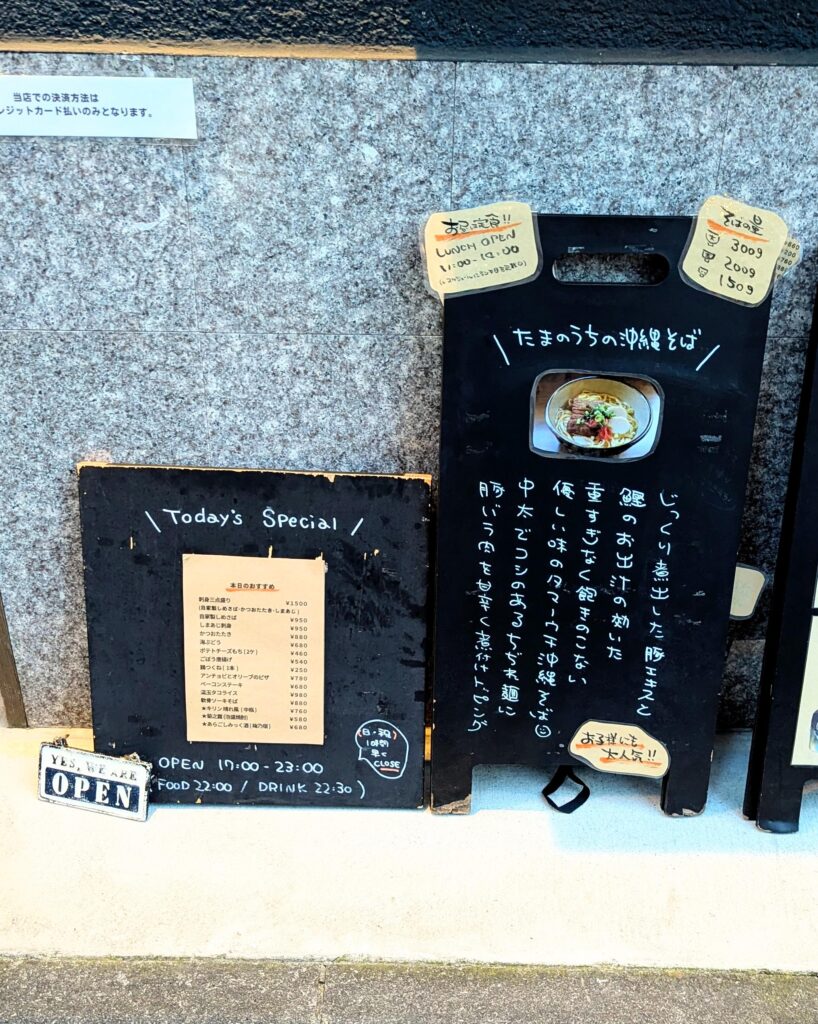 当店での決済方法は
レジットカード払いのみとなります。
お昼定食!!
LUNCH OPEN
そばの量
300g
200g
150g
たまのうちの沖縄そば
じっくり煮出した豚エキスと
鰹のお出汁の効いた
重すぎなく飽きのこない
優しい味のタマーウチ沖縄そば
中太でコシのあるちぢれ麺に
豚バラ肉を甘辛く煮付トッピング
お子様にも
大人気!!
Today's Special
本日のおすすめ
刺身三点盛り ¥1500
(自家製しめさば・かつおたたき・しまあじ)
自家製しめさば ¥950
しまあじ刺身 ¥950
かつおたたき ¥880
海ぶどう ¥680
ポテトチーズもち(2ケ) ¥460
ごぼう唐揚げ ¥540
鶏つくね(1本) ¥250
アンチョビとオリーブのピザ ¥780
ベーコンステーキ ¥680
温玉タコライス ¥980
軟骨ソーキそば ¥880
★キリン晴れ風(中瓶) ¥760
★菊之露(泡盛焼酎) ¥580
★あらごしみっく酒 ¥680
OPEN 17:00-23:00
FOOD 22:00 / DRINK 22:30)
(日・祝)
1時間
早く
CLOSE
YES, WE ARE
OPEN